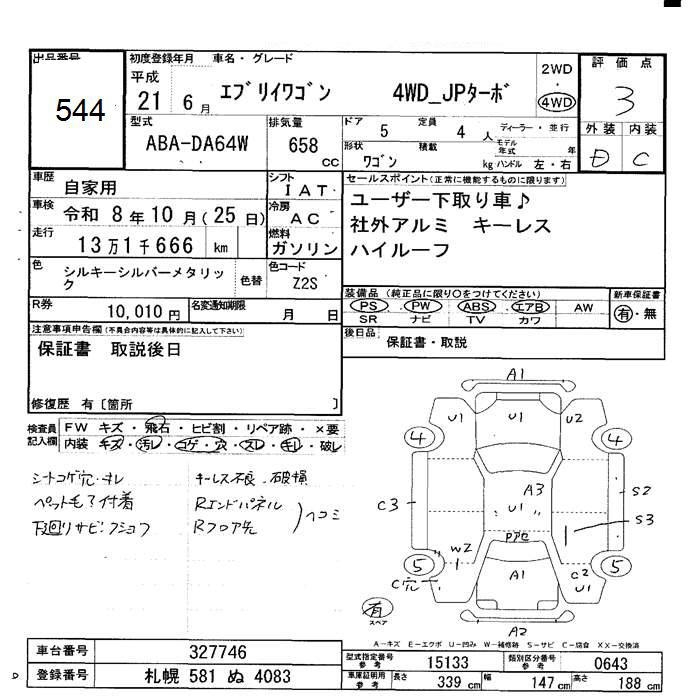 出品番号
544
初度登録年月
平成
21 6月
車名・グレード
エブリイワゴン 4WD_JPターボ
2WD
・
4WD
評価点
3
外装 内装
D C
型式
ABA-DA64W
排気量
658
cc
ドア 5
定員 4 人
ディーラー・並行
形状
ワゴン
積載
kg
モデル年式
年
ハンドル 左・右
車歴
自家用
シフト
I AT
車検
令和 8年 10月(25日)
冷房
AC
走行
13万1千666 km
燃料
ガソリン
色
シルキーシルバーメタリック
色替
色コード
Z2S
R券
10,010円
名変通知期限
月 日
セールスポイント(正常に機能するものに限ります)
ユーザー下取り車♪
社外アルミ キーレス
ハイルーフ
装備品(純正品に限り〇をつけてください)
PS ・ PW ・ ABS ・ エアB ・ AW
SR ナビ TV カワ
新車保証書
有・無
後日品
保証書・取説
注意事項申告欄(不具合内容等は具体的に記入して下さい)
保証書 取説後日
修復歴 有〔箇所 〕
検査員記入欄
FW キズ・飛石・ヒビ割・リペア跡・×要
内装 キズ・汚レ・コゲ・穴・スレ・キレ・破レ
シートコゲ穴・キレ
ペット毛?付着
下廻りサビ・クショフ
キーレス不良・破損
Rエンドパネル
Rフロア先
ヘコミ
A1
U1 U1 U2
4 4
C3 A3 S2
〃U1〃 S3
Pアセ
W2
5 5
A1 C2
C穴 U1
有
スペア
A2
A-キズ E-エクボ U-凹み W-補修跡 S-サビ C-腐食 XX-交換済
車台番号
327746
登録番号
札幌 581 ぬ 4083
型式指定番号
参考
15133
類別区分番号
参考
0643
車庫証明用
参考
長さ 339 cm
幅 147 cm
高さ 188 cm